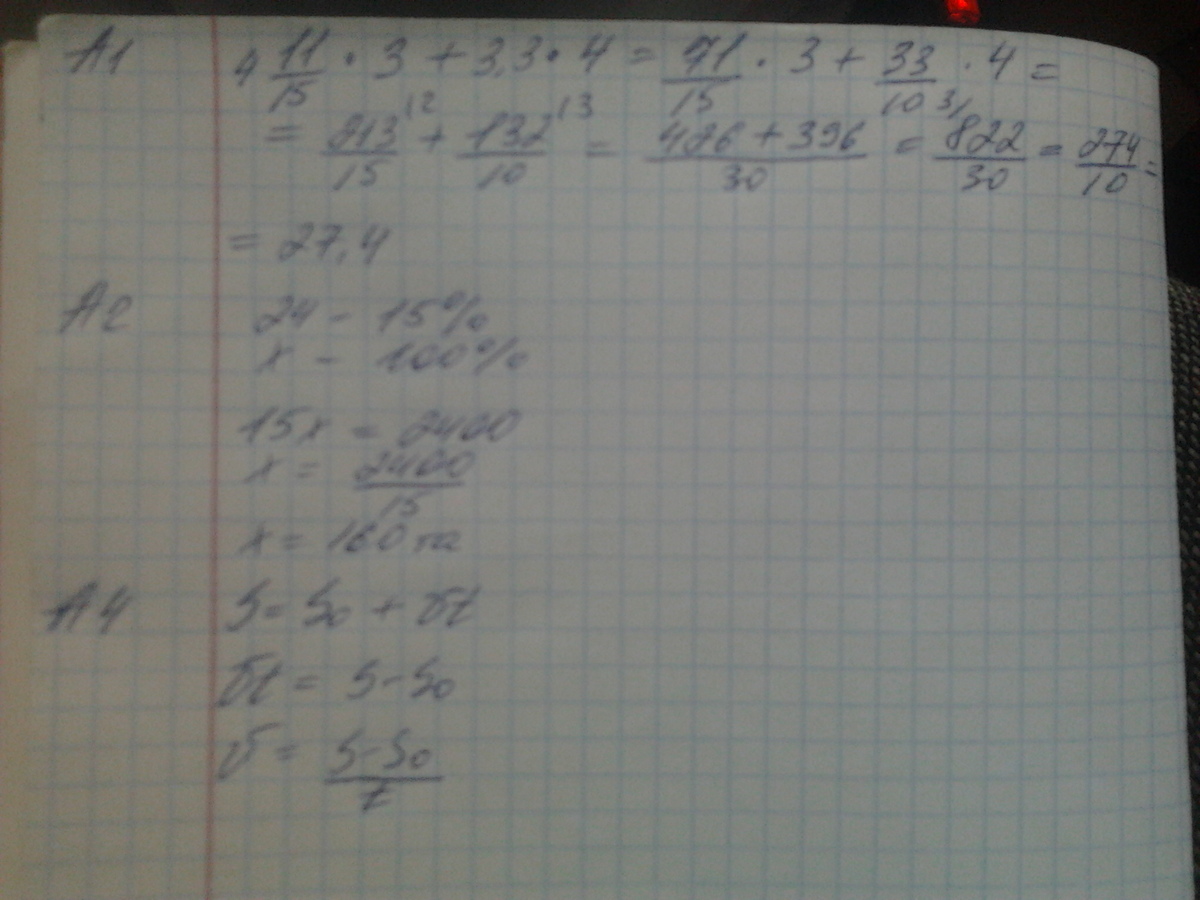 А1 4 11/15 · 3 + 3,3 · 4 = 71/15 · 3 + 33/10 · 4 =
= 213/15 |2 + 132/10 |3 = 426 + 396/30 = 822/30 3/ = 274/10 =
= 27,4
А2 24 – 15%
х – 100%
15х = 2400
х = 2400/15
х = 160 га
А4 S = S₀ + vt
vt = S – S₀
v = S – S₀/t